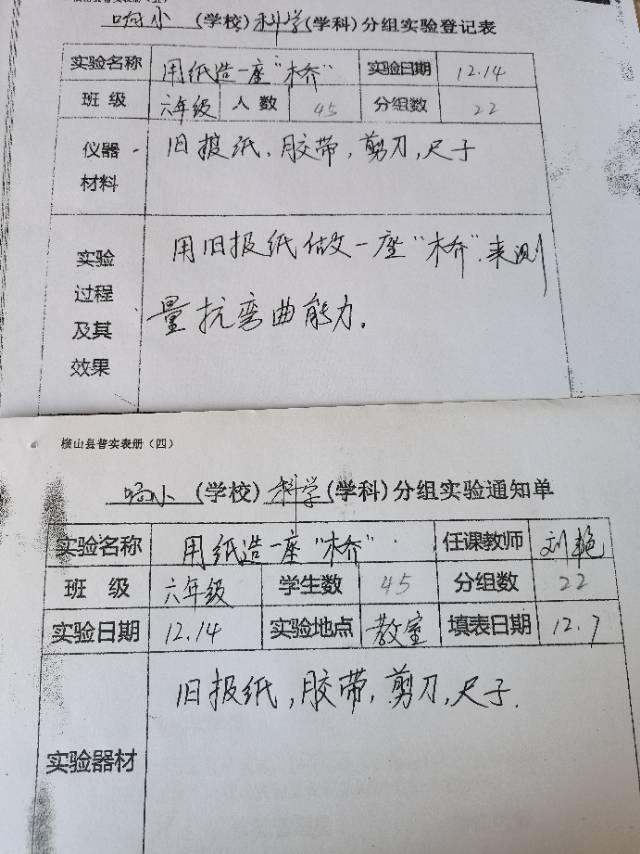 响小（学校）科学（学科）分组实验登记表
实验名称 用纸造一座“桥” 实验日期 12.14
班 级 六年级 人 数 45 分组数 22
仪器材料 旧报纸、胶带，剪刀，尺子
实验过程及其效果 用旧报纸做一座“桥”来测
量抗弯曲能力.
横山县普实表册（四）
响小（学校）科学（学科）分组实验通知单
实验名称 用纸造一座“桥” 任课教师 刘艳
班 级 六年级 学生数 45 分组数 22
实验日期 12.14 实验地点 教室 填表日期 12.7
实验器材 旧报纸，胶带，剪刀，尺子.